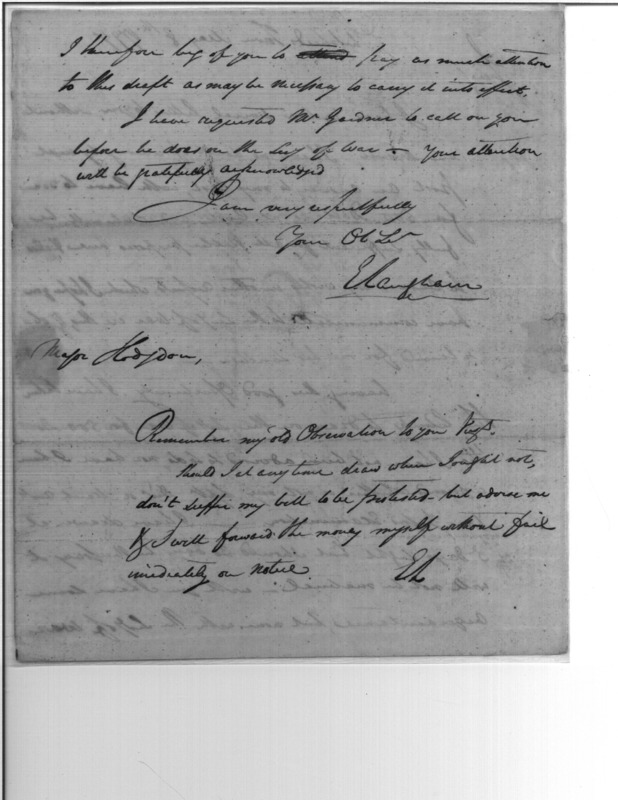 I therefore beg of you to attend pay as much attention
to this draft as may be necessary to carry it into effect.
I have requested Mr. Gardner to call on you
before he does on the Secy of War – Your attention
will be gratefully acknowledged
I am very respectfully
Your Ob Sr
E Langham
Major Hodgdon,
Remember my old Observation to you
Should I at any time draw when I ought not,
don't suffer my bill to be protested but advise me
& I will forward the money myself without fail
imediately on notice
EL